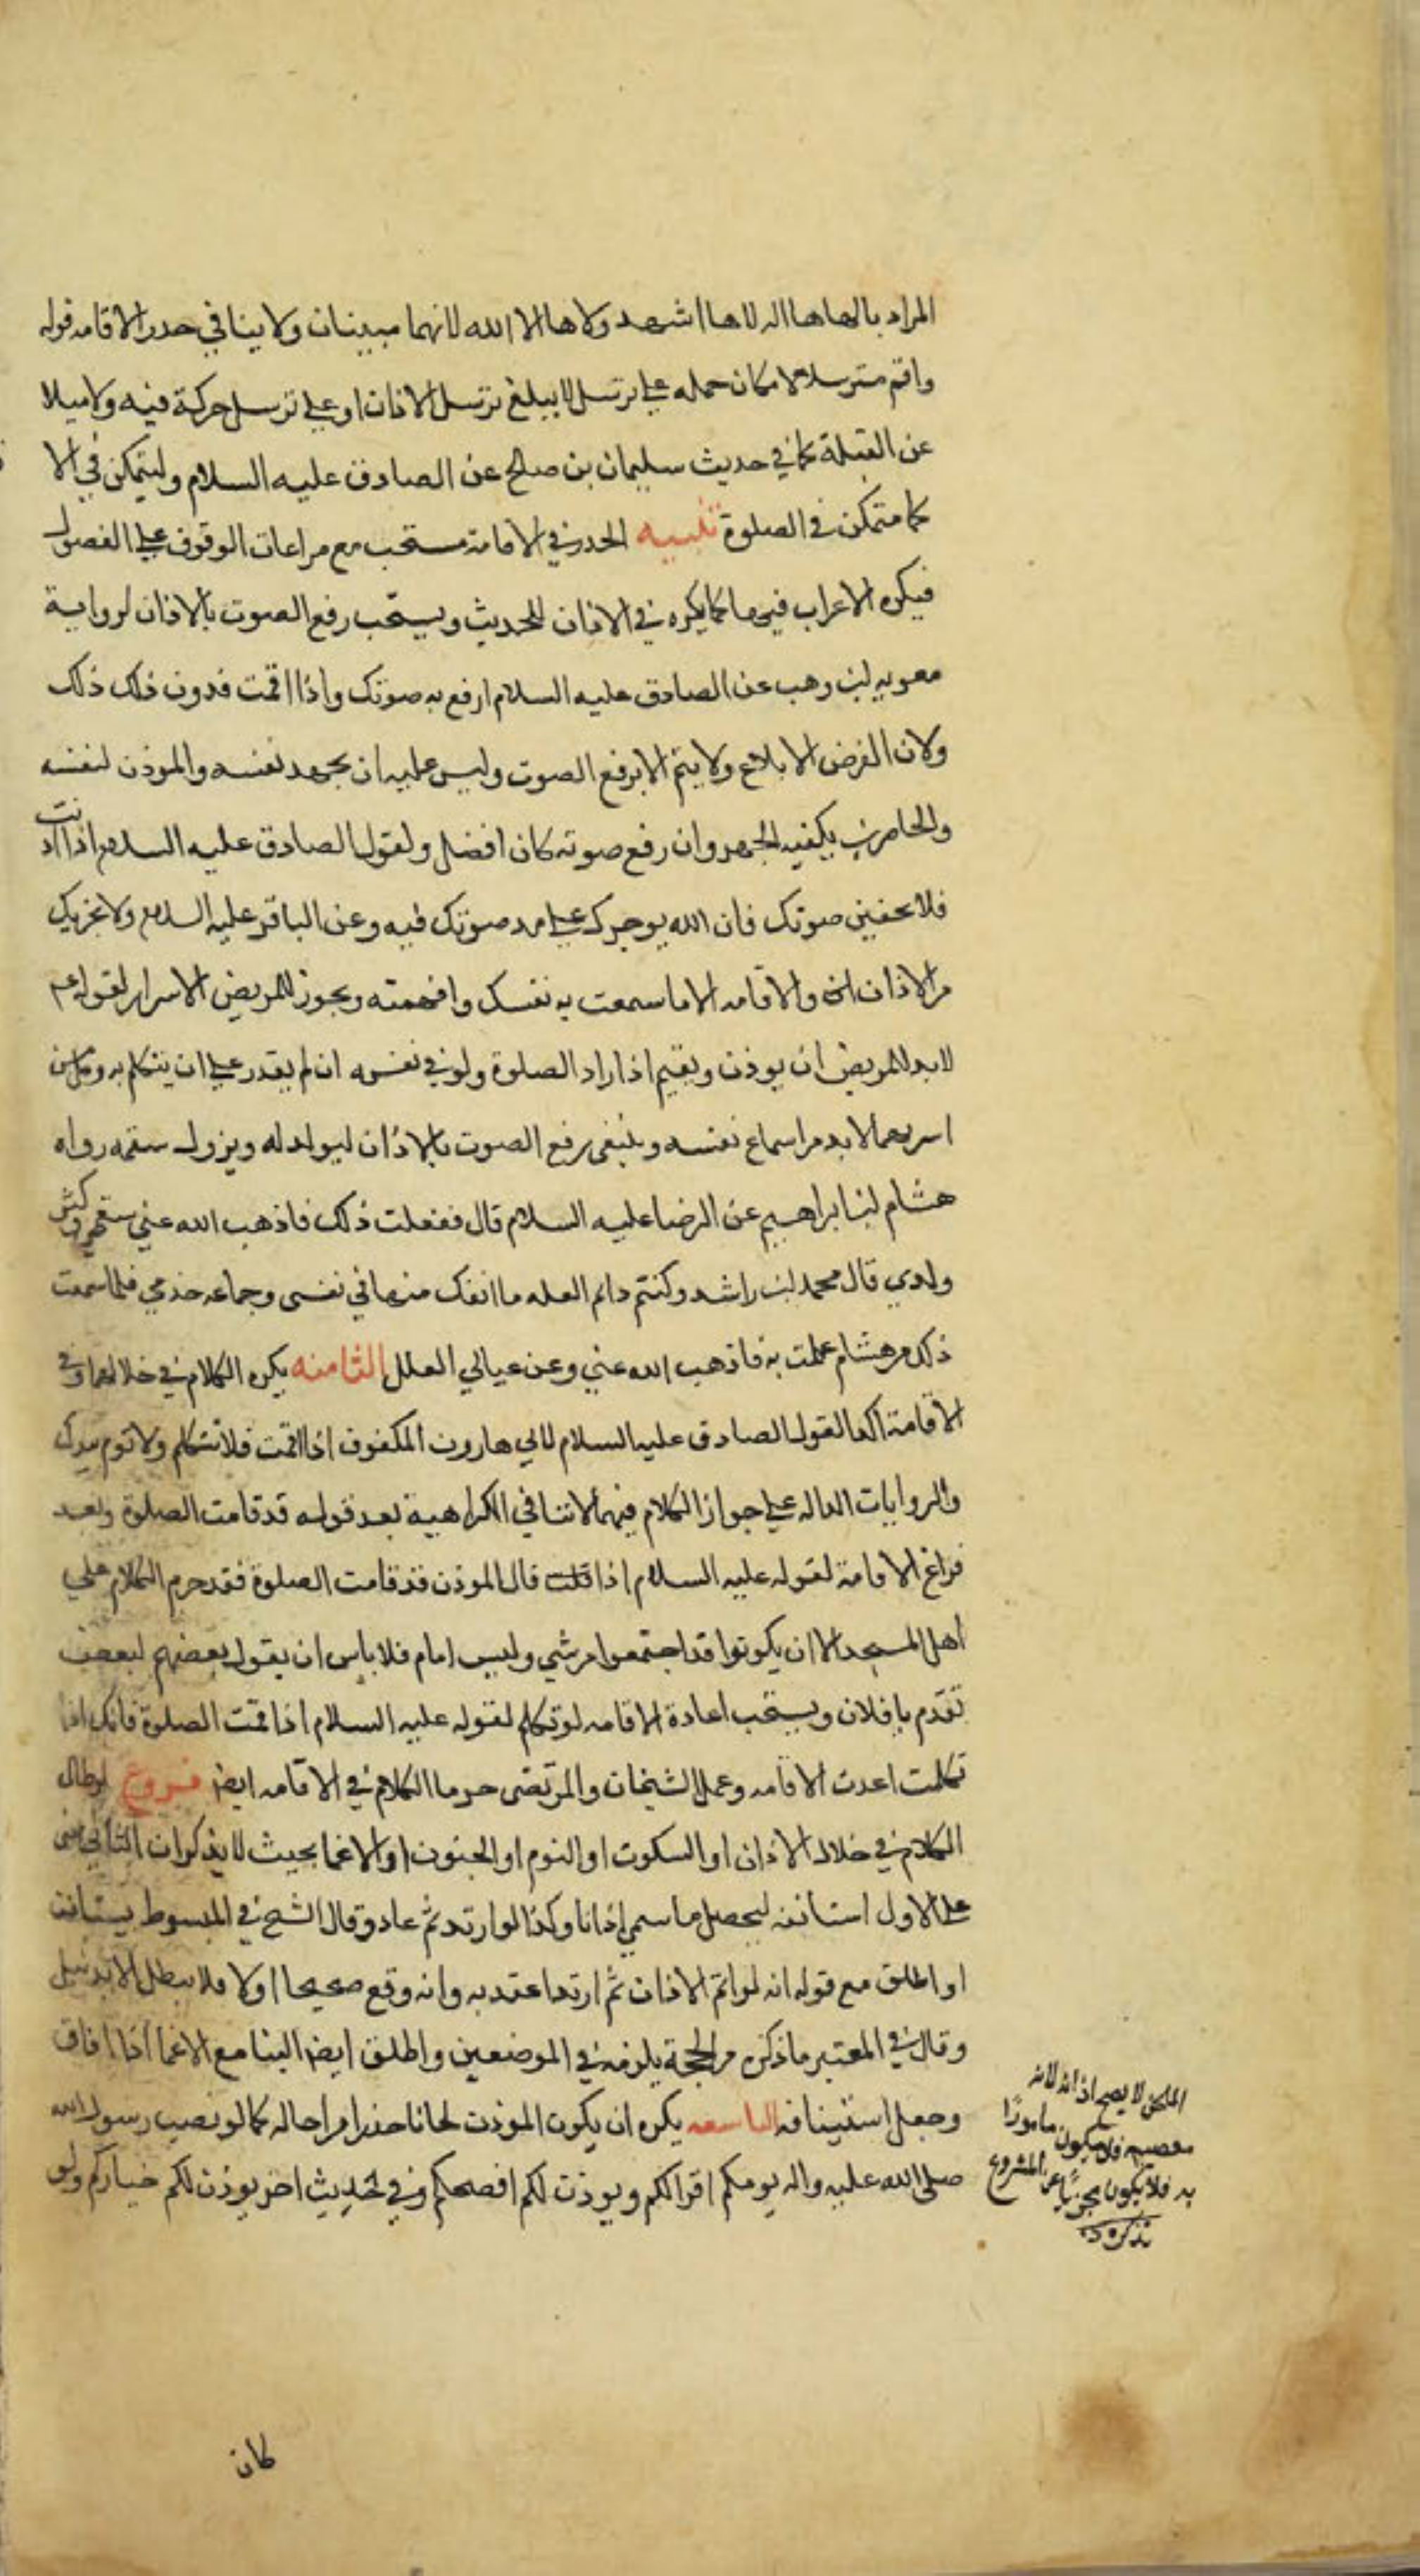 المراد بالهاها اله لاها اشهد ولاها الا الله لانهما مبينان ولا ينافي حدر الاقامه قوله
واقم مترسلا لامكان حمله على ترتسل لا يبلغ ترسل الاذان او على ترسل حركة فيه ولا ميلا
عن القبلة كما في حديث سليمان بن صالح عن الصادق عليه السلام وليتمكن في الا
كما متمكن في الصلوة تنبيه الحدر في الاقامة مستحب مع مراعات الوقوف على الفصول
فيكره الاعراب فيها كما يكره في الاذان للحديث ويستحب رفع الصوت بالاذان لرواية
معويه ابن وهب عن الصادق عليه السلام ارفع به صوتك واذا اقمت فدون ذلك ذلك
ولان الغرض الابلاغ ولا يتم الا برفع الصوت وليس عليه ان يجهد نفسه والموذن لنفسه
والحاضرين يكفيه الجهر وان رفع صوته كان افضل ولقول الصادق عليه السلام اذا اذنت
فلا تخفين صوتك فان الله يوجرك على مد صوتك فيه وعن الباقر عليه السلام ولا يجزيك
من الاذان والاقامه الا ما سمعت به نفسك وافهمته ويجوز للمريض الاسرار لقوله عم
لا بد للمريض ان يوذن ويقيم اذا اراد الصلوة ولو في نفسه ان لم يقدر على ان يتكلم به
اسر بهما لا بد من اسماع نفسه وينبغي رفع الصوت بالاذان ليولد له ويزول سقمه رواه
هشام ابن ابراهيم عن الرضا عليه السلام قال ففعلت ذلك فاذهب الله عني سقمي وكثر
ولدي قال محمد ابن راشد وكنت دائم العله ما انفك منها في نفسي وجماعه خدمي فلما سمعت
ذلك من هشام عملت به فاذهب الله عني وعن عيالي العلل الثامنه يكره الكلام في خلالهما وفي
الاقامة اكد لقول الصادق عليه السلام لابي هارون المكفوف اذا اقمت فلا تتكلم ولا توم بيدك
والروايات الداله على جواز الكلام فيهما لا تنافي الكراهية بعد قوله قد قامت الصلوة وبعد
فراغ الاقامة لقوله عليه السلام اذا قلت قال الموذن قد قامت الصلوة فقد حرم الكلام على
اهل المسجد الا ان يكونوا قد اجتمعوا من شتي وليس امام فلا باس ان يقول بعضهم لبعض
تقدم يا فلان ويستحب اعادة الاقامه لو تكلم لقوله عليه السلام اذا قمت الصلوة فانك اذا
تكلمت اعدت الاقامه وعمل الشيخان والمرتضى حرما الكلام في الاقامه ايضا فروع لو طال
الكلام في خلال الاذان او السكوت او النوم او الجنون او الاغما بحيث لا يذكر ان الثاني مبني
على الاول استانفه ليحصل ما سمي اذانا وكذا لو ارتد ثم عاد وقال الشيخ في المبسوط يستانف
او اطلق مع قوله انه لو اتم الاذان ثم ارتد اعتد به وانه وقع صحيحا اولا فلا يبطل الا بدليل
وقال في المعتبر ما ذكره من الحجة يلزمه في الموضعين واطلق ايضا البنا مع الاغما اذا افاق
وجعل استينافه التاسعه يكره ان يكون الموذن لحانا حذرا من احاله كما لو نصب رسول الله
صلى الله عليه واله يومكم اقراكم ويوذن لكم افصحكم وفي حديث اخر يوذن لكم خياركم ولو
الملحن لا يصح اذانه لانه
معصيه فلا يكون مامورا
به فلا يكون مجزيا عن المشروع
تذكره
كان